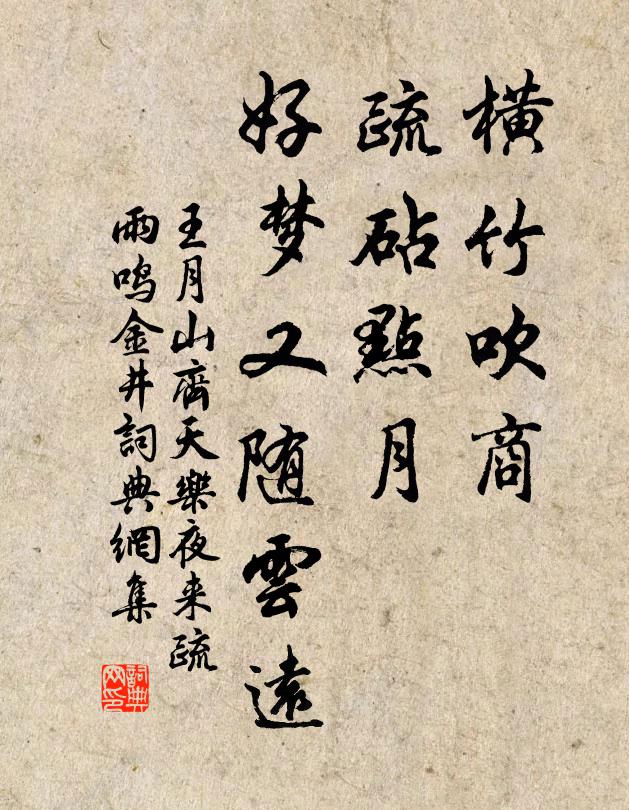 横竹吹商
疏砧點月
好梦又随雲遠
王月山齊天樂夜来疏
雨鸣金井詞典網集
詞典
网印